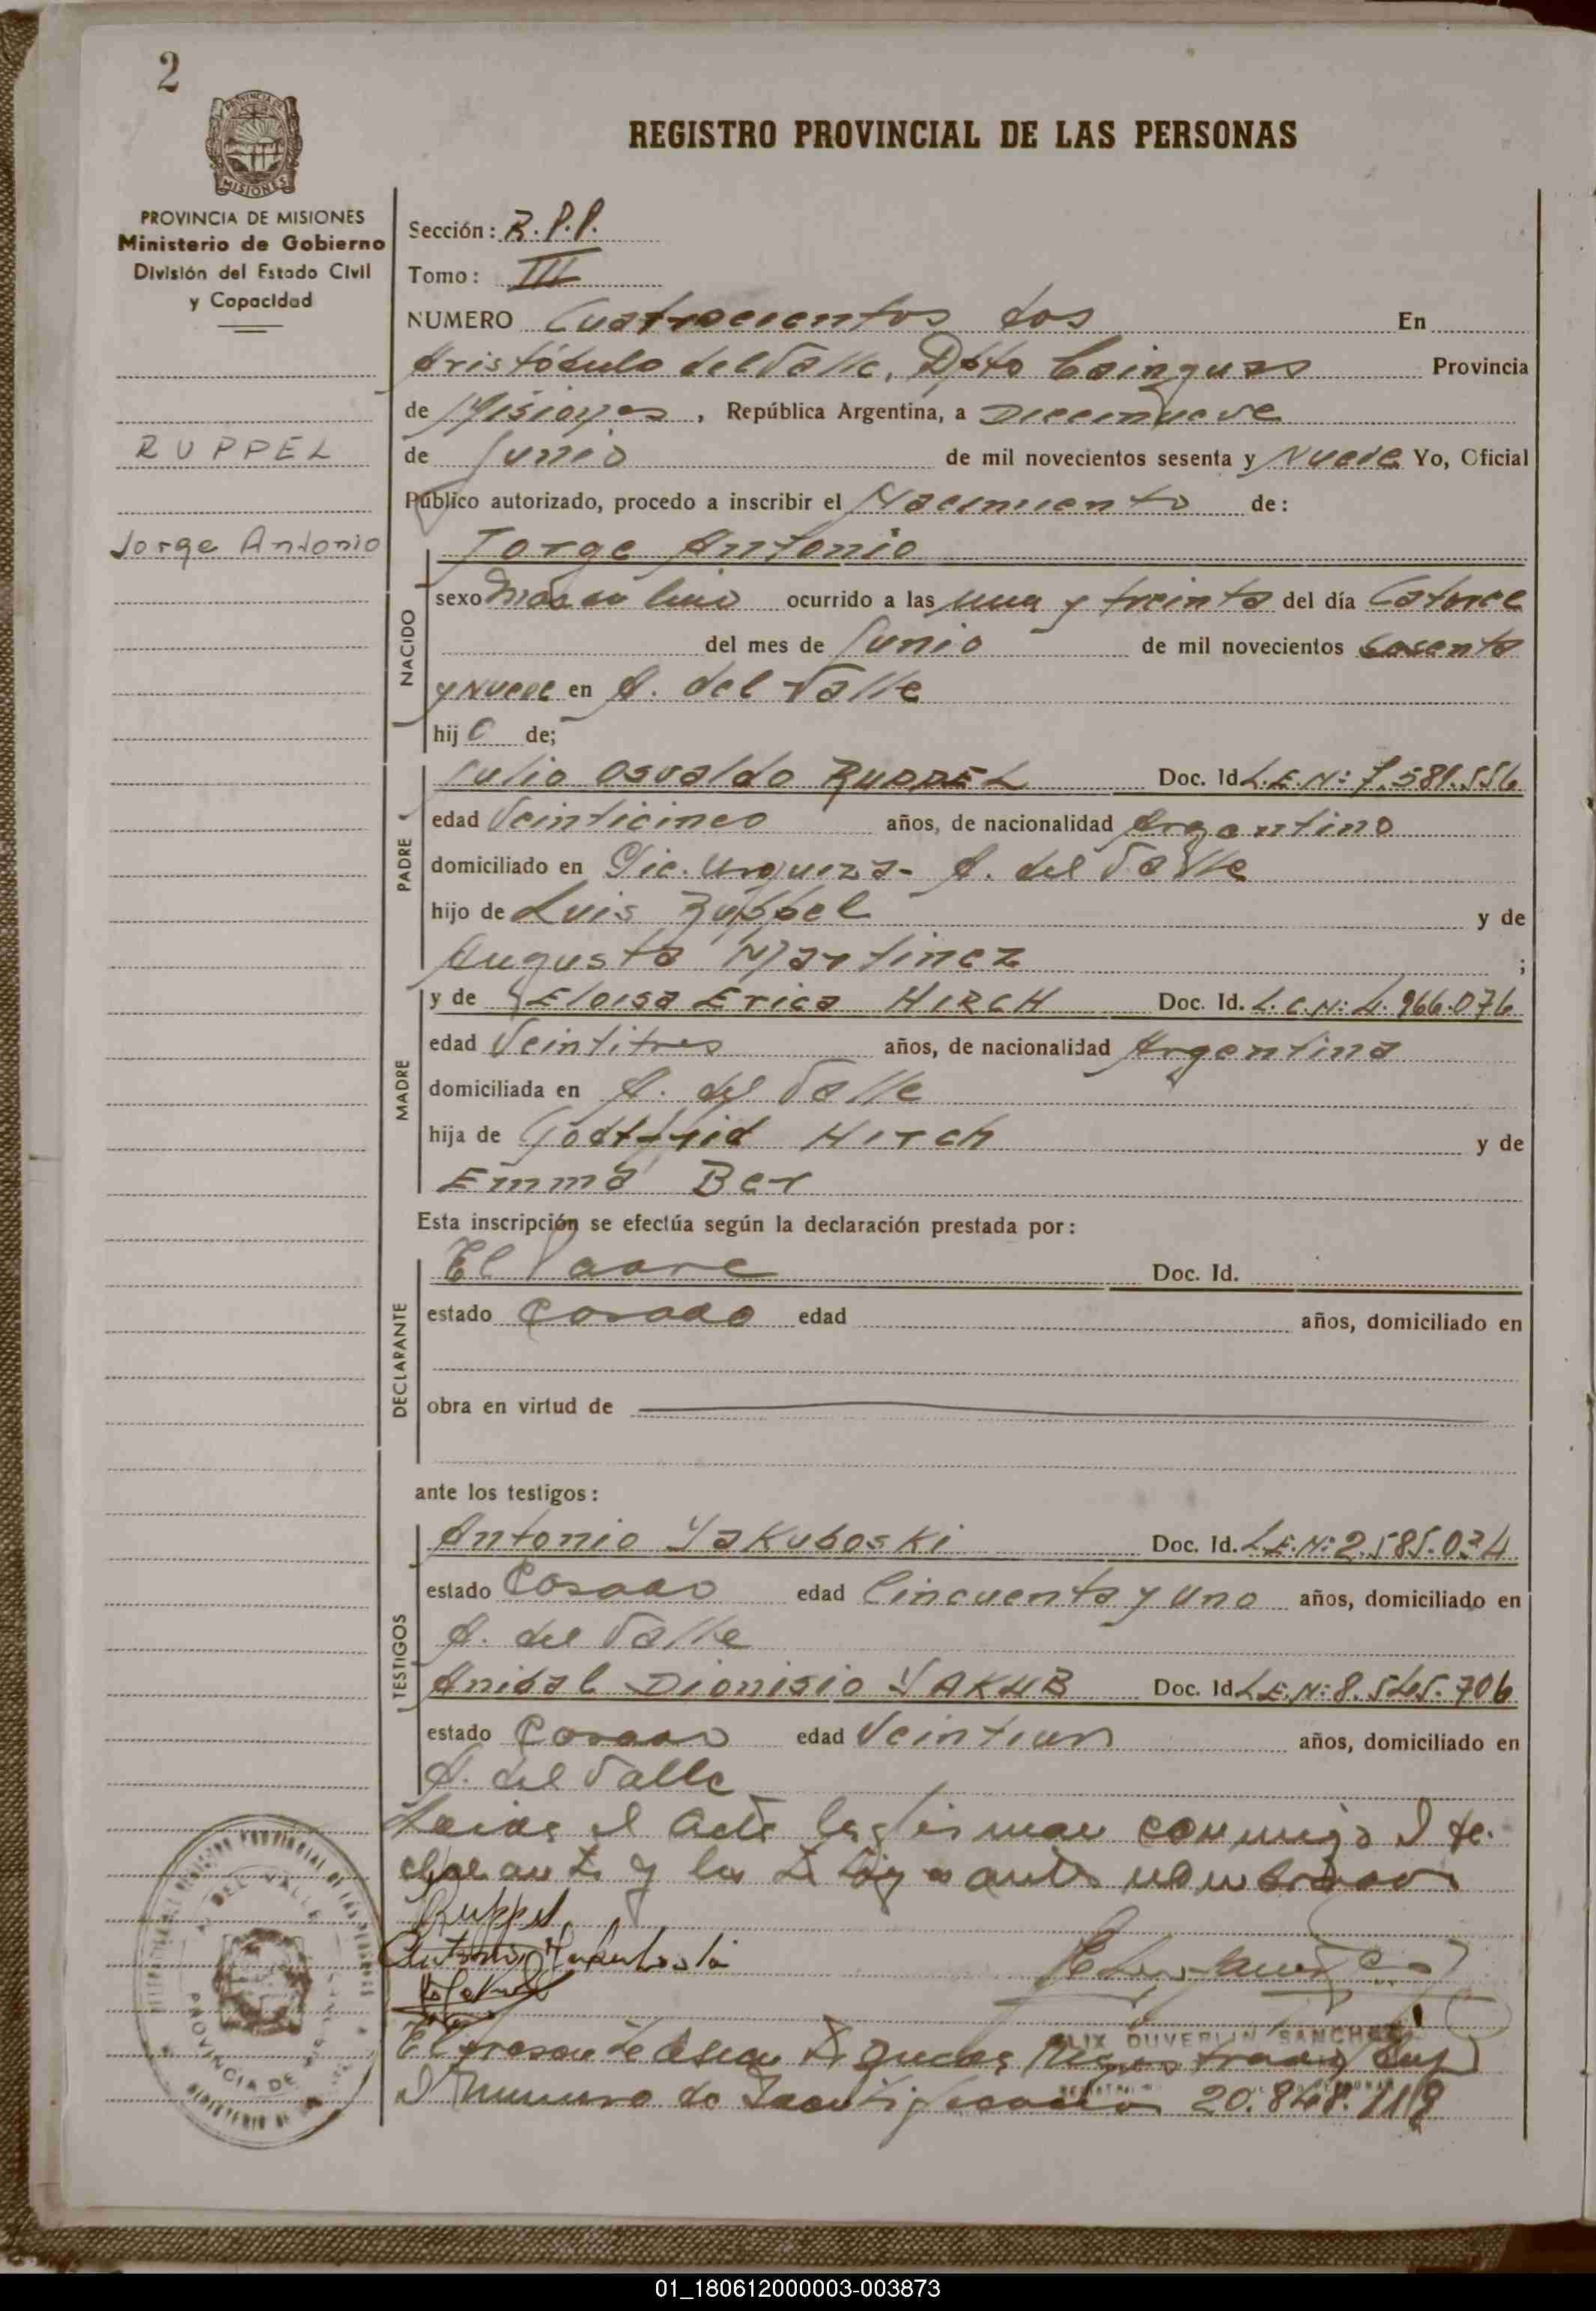 2
REGISTRO PROVINCIAL DE LAS PERSONAS
PROVINCIA DE MISIONES
Ministerio de Gobierno
División del Estado Civil
y Capacidad
RUPPEL
Jorge Antonio
Sección: R.P.P.
Tomo: III
NUMERO Cuatrocientos dos En
Aristóbulo del Valle, Dpto Cainguas Provincia
de Misiones, República Argentina, a Diecinueve
de Junio de mil novecientos sesenta y Nueve Yo, Oficial
Público autorizado, procedo a inscribir el Nacimiento de:
NACIDO
Jorge Antonio
sexo Masculino ocurrido a las una y treinta del día Catorce
del mes de Junio de mil novecientos sesenta
y nueve en A. del Valle
hijo de;
PADRE
Julio Osvaldo RUPPEL Doc. Id. L.E.N: 7.581.556
edad Veinticinco años, de nacionalidad Argentino
domiciliado en Pic. Urquiza - A. del Valle
hijo de Luis Ruppel y de
Augusta Martinez ;
MADRE
y de Eloisa Erica HIRCH Doc. Id. L.C.N: 4.966.076
edad Veintitres años, de nacionalidad Argentina
domiciliada en A. del Valle
hija de Godtfrid Hirch y de
Emma Ber
Esta inscripción se efectúa según la declaración prestada por:
DECLARANTE
El Padre Doc. Id.
estado Casado edad años, domiciliado en
obra en virtud de
ante los testigos:
TESTIGOS
Antonio Yakuboski Doc. Id. L.E.N: 2.585.034
estado Casado edad Cincuenta y uno años, domiciliado en
A. del Valle
Anibal Dionisio YAKUB Doc. Id. L.E.N: 8.545.706
estado Casado edad Veintiun años, domiciliado en
A. del Valle
Leida el acta la firman conmigo el de
clarante y los testigos antes nombrados
Ruppel
Antonio Yakuboski
DUVERLIN SANCHEZ
El presente queda registrado
el numero de Identificacion 20.848.118
A. DEL VALLE
PROVINCIA DE
01_180612000003-003873